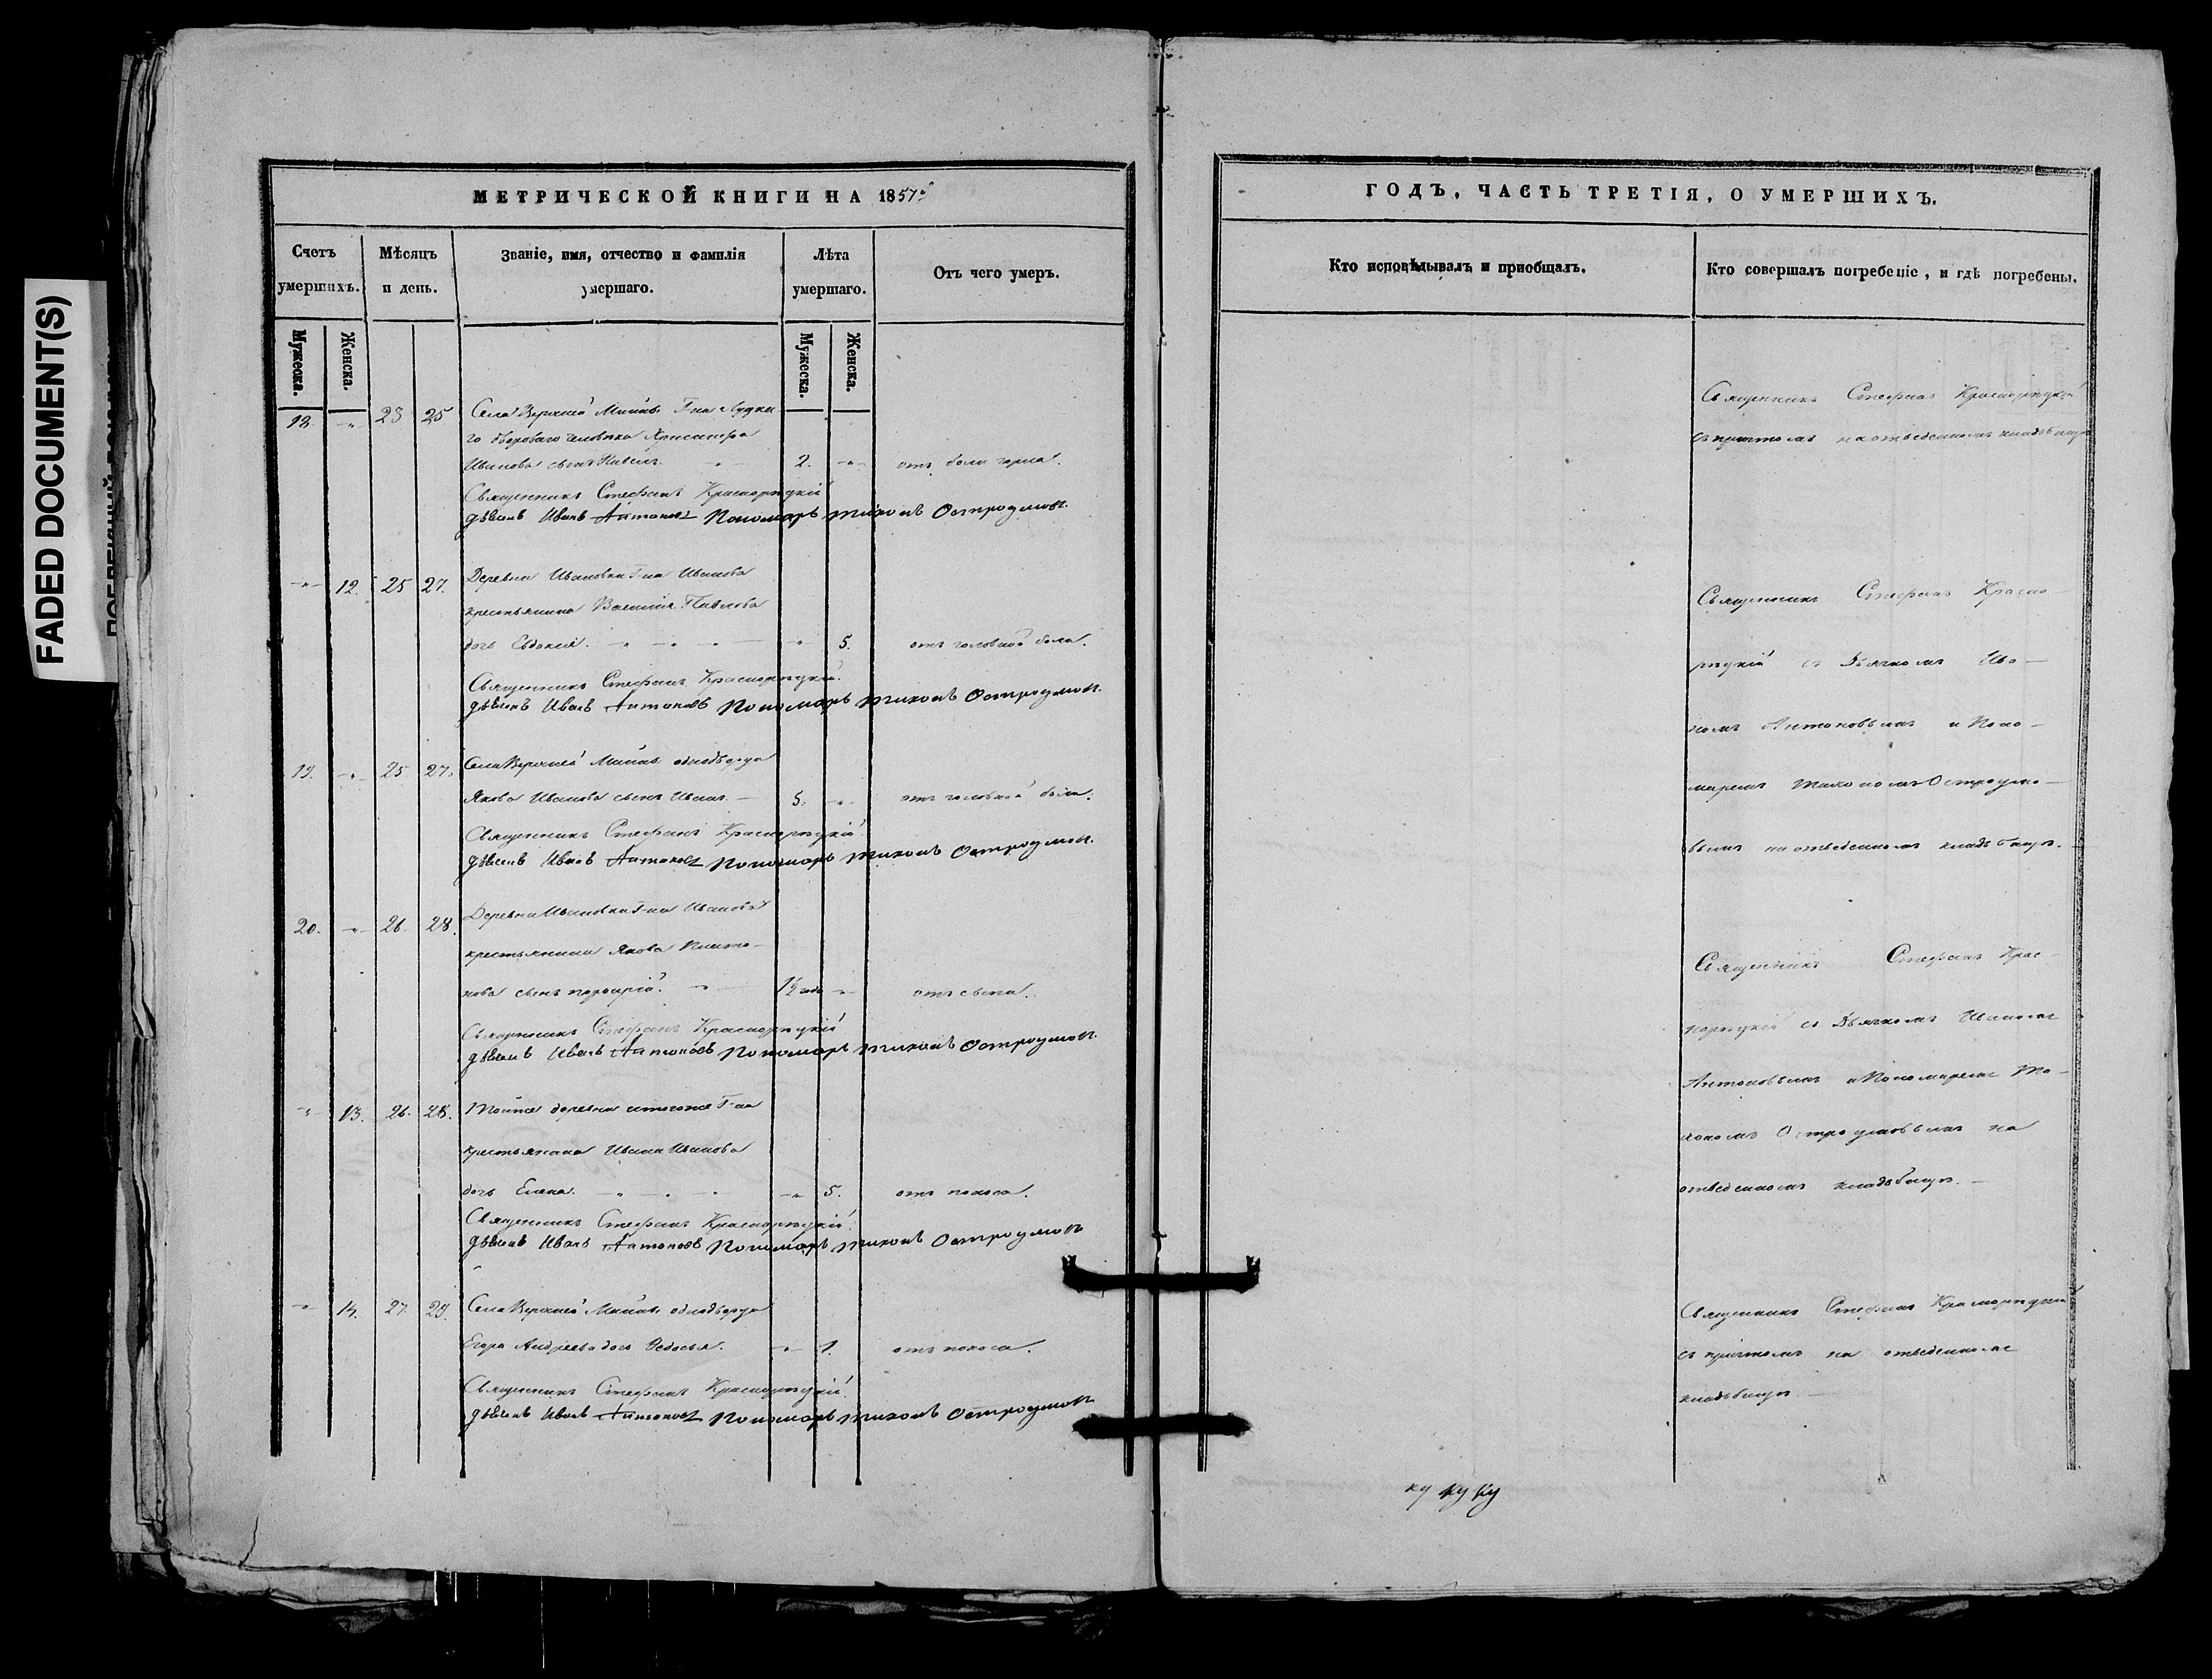 FADED DOCUMENT(S)
МЕТРИЧЕСКОЙ КНИГИ НА 1857й
Счетъ умершихъ.
Мѣсяцъ и день.
Званіе, имя, отчество и фамилія умершаго.
Лѣта умершаго.
Отъ чего умеръ.
Мужеска.
Женска.
Мужеска.
Женска.
18. -"- 23 25 Села Верхней Г-на
го двороваго человѣка
Иванова сынъ 2. -"- отъ боли горла.
Священникъ Стефанъ Краснорѣцкій
дьячекъ Иванъ Антоновъ Пономарь тихонъ Остроумовъ.
-"- 12. 25 27. Деревни Ивановки Г-на Иванова
крестьянина Василія Павлова
дочь Евдокія. -"- 5. отъ головной боли.
Священникъ Стефанъ Краснорѣцкій.
дьячекъ Иванъ Антоновъ Пономарь тихонъ Остроумовъ.
19. -"- 25 27. Села Верхней однодворца
Якова Иванова сынъ Иванъ. 5. -"- отъ головной боли.
Священникъ Стефанъ Краснорѣцкій
дьячекъ Иванъ Антоновъ Пономарь тихонъ Остроумовъ.
20. -"- 26. 28. Деревни Ивановки Г-на Иванова
крестьянина Якова Плато-
нова сынъ порфирій. 1/2 года -"- отъ сыпи.
Священникъ Стефанъ Краснорѣцкій
дьячекъ Иванъ Антоновъ Пономарь тихонъ Остроумовъ.
-"- 13. 26. 28. Тойже деревни итогоже Г-на
крестьянина Ивана Иванова
дочь Елена. -"- 5. отъ поноса.
Священникъ Стефанъ Краснорѣцкій.
дьячекъ Иванъ Антоновъ Пономарь тихонъ Остроумовъ
-"- 14. 27. 29. Села Верхней однодворца
Егора Андреева дочь Ѳедосья. -"- 1. отъ поноса.
Священникъ Стефанъ Краснорѣцкій.
дьячекъ Иванъ Антоновъ Пономарь тихонъ Остроумовъ
ГОДЪ, ЧАСТЬ ТРЕТІЯ, О УМЕРШИХЪ.
Кто исповѣдывалъ и приобщалъ.
Кто совершалъ погребеніе, и гдѣ погребены.
Священникъ Стефанъ Краснорѣцкій
съ причтомъ на отведенномъ кладбищѣ
Священникъ Стефанъ Красно-
рѣцкій съ Дьячкомъ Ива-
номъ Антоновымъ и Поно-
маремъ Тихономъ Остроумо-
вымъ на отведенномъ кладбищѣ.
Священникъ Стефанъ Крас-
норѣцкій съ Дьячкомъ Иваномъ
Антоновымъ и Пономаремъ Ти-
хономъ Остроумовымъ на
отведенномъ кладбищѣ.
Священникъ Стефанъ Краснорѣцкій
съ причтомъ на отведенномъ
кладбищѣ.
ку ку ку